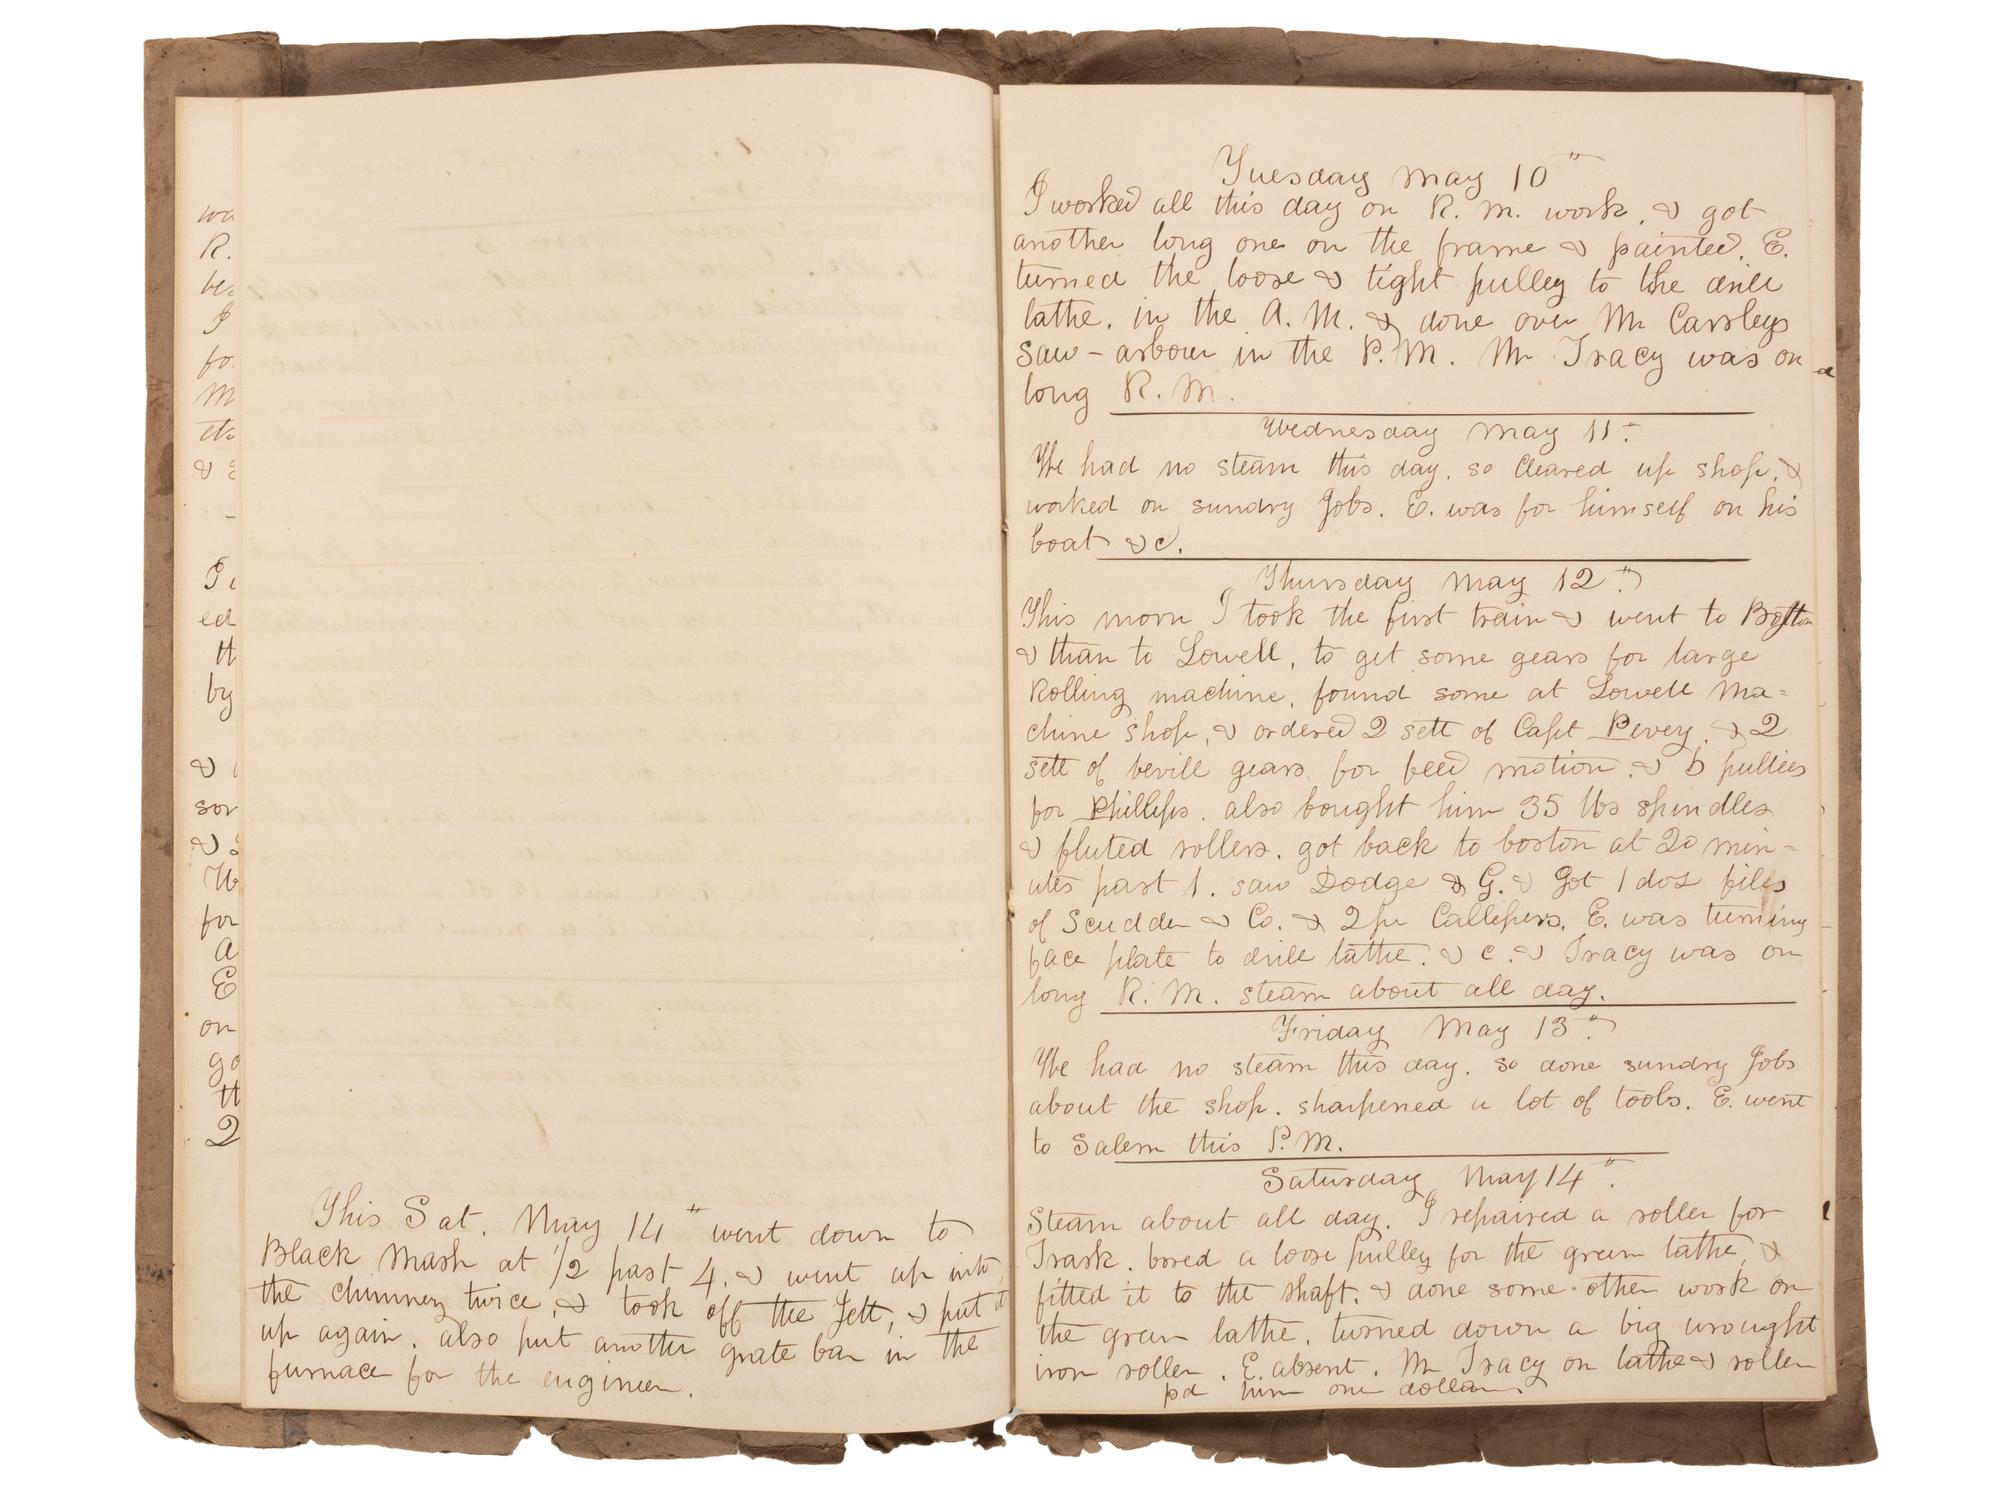 wa
R.
bes
I
fo
M
etc
&
I
ed
th
by
&
som
&
W
for
A
E
on
go
th
2
This Sat. May 14" went down to
Black Mash at 1/2 past 4, & went up into
the chimney twice, & took off the Jett, & put it
up again. also put another grate bar in the
furnace for the engineer.
Tuesday May 10"
I worked all this day on R. M. work, & got
another long one on the frame & painted. E.
turned the loose & tight pulley to the drill
lathe, in the A. M. & done over Mr Carsleys
saw-arbour in the P. M. Mr Tracy was on
long R. M.
Wednesday May 11"
We had no steam this day, so Cleared up shop, &
worked on sundry Jobs. E. was for himself on his
boat &c.
Thursday May 12"
This morn I took the first train & went to Boston
& than to Lowell, to get some gears for large
Rolling machine, found some at Lowell Ma=
chine shop, & ordered 2 sett of Capt Pevey, & 2
sett of bevill gears for feed motion, & 6 pullies
for Phillips. also bought him 35 lbs spindles
& fluted rollers, got back to boston at 20 min-
utes past 1. saw Dodge & G. & Got 1 doz files
of Scudder & Co. & 2 pr Callipers, E. was turning
face plate to drill lathe, & c. & Tracy was on
long R. M. steam about all day.
Friday May 13"
We had no steam this day, so done sundry Jobs
about the shop. sharpened a lot of tools. E. went
to Salem this P. M.
Saturday May 14"
Steam about all day. I repaired a roller for
Trask. bored a loose pulley for the green lathe, &
fitted it to the shaft, & done some other work on
the green lathe, turned down a big wrought
iron roller. E. absent. Mr Tracy on lathe & roller
pd him one dollar